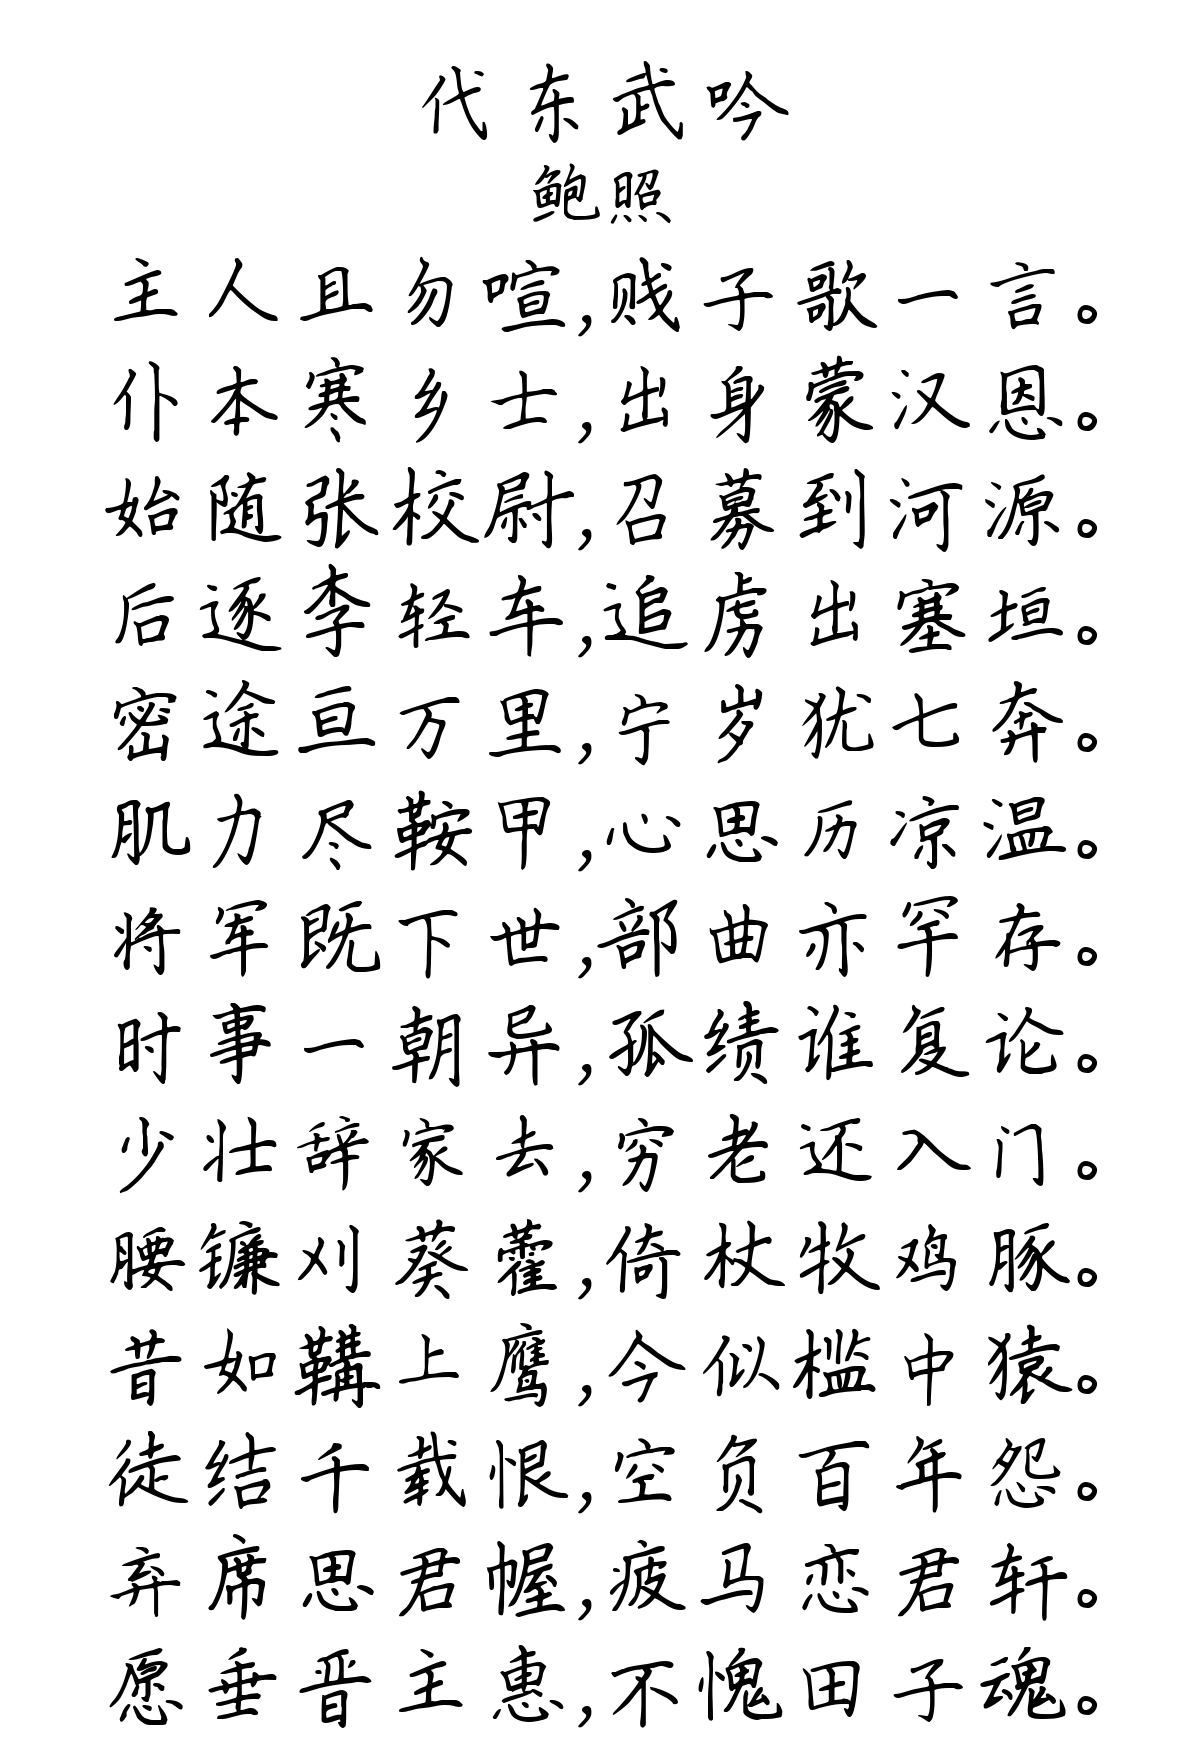 代东武吟
鲍照
主人且勿喧,贱子歌一言。
仆本寒乡士,出身蒙汉恩。
始随张校尉,召募到河源。
后逐李轻车,追虏出塞垣。
密途亘万里,宁岁犹七奔。
肌力尽鞍甲,心思历凉温。
将军既下世,部曲亦罕存。
时事一朝异,孤绩谁复论。
少壮辞家去,穷老还入门。
腰镰刈葵藿,倚杖牧鸡豚。
昔如鞲上鹰,今似槛中猿。
徒结千载恨,空负百年怨。
弃席思君幄,疲马恋君轩。
愿垂晋主惠,不愧田子魂。